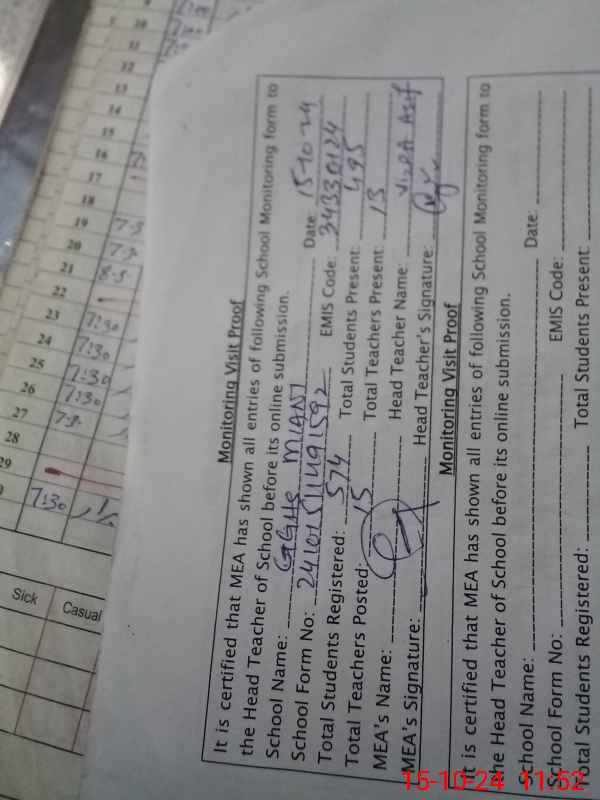 Monitoring Visit Proof
It is certified that MEA has shown all entries of following School Monitoring form to
the Head Teacher of School before its online submission.
School Name: GGHS MIANI Date: 15-10-24
School Form No: EMIS Code: 34330124
Total Students Registered: 574 Total Students Present: 495
Total Teachers Posted: 15 Total Teachers Present: 13
MEA's Name: Head Teacher Name: Asif
MEA's Signature: Head Teacher's Signature:
Monitoring Visit Proof
It is certified that MEA has shown all entries of following School Monitoring form to
the Head Teacher of School before its online submission.
School Name: Date:
School Form No: EMIS Code:
Total Students Registered: Total Students Present:
10
11
12
13
14
15
16
17
18
19
20
21 8.5
22
23 7:30
24 7:30
25 7:30
26 7:30
27
28
29
7:30
Sick Casual
15-10-24 11:52